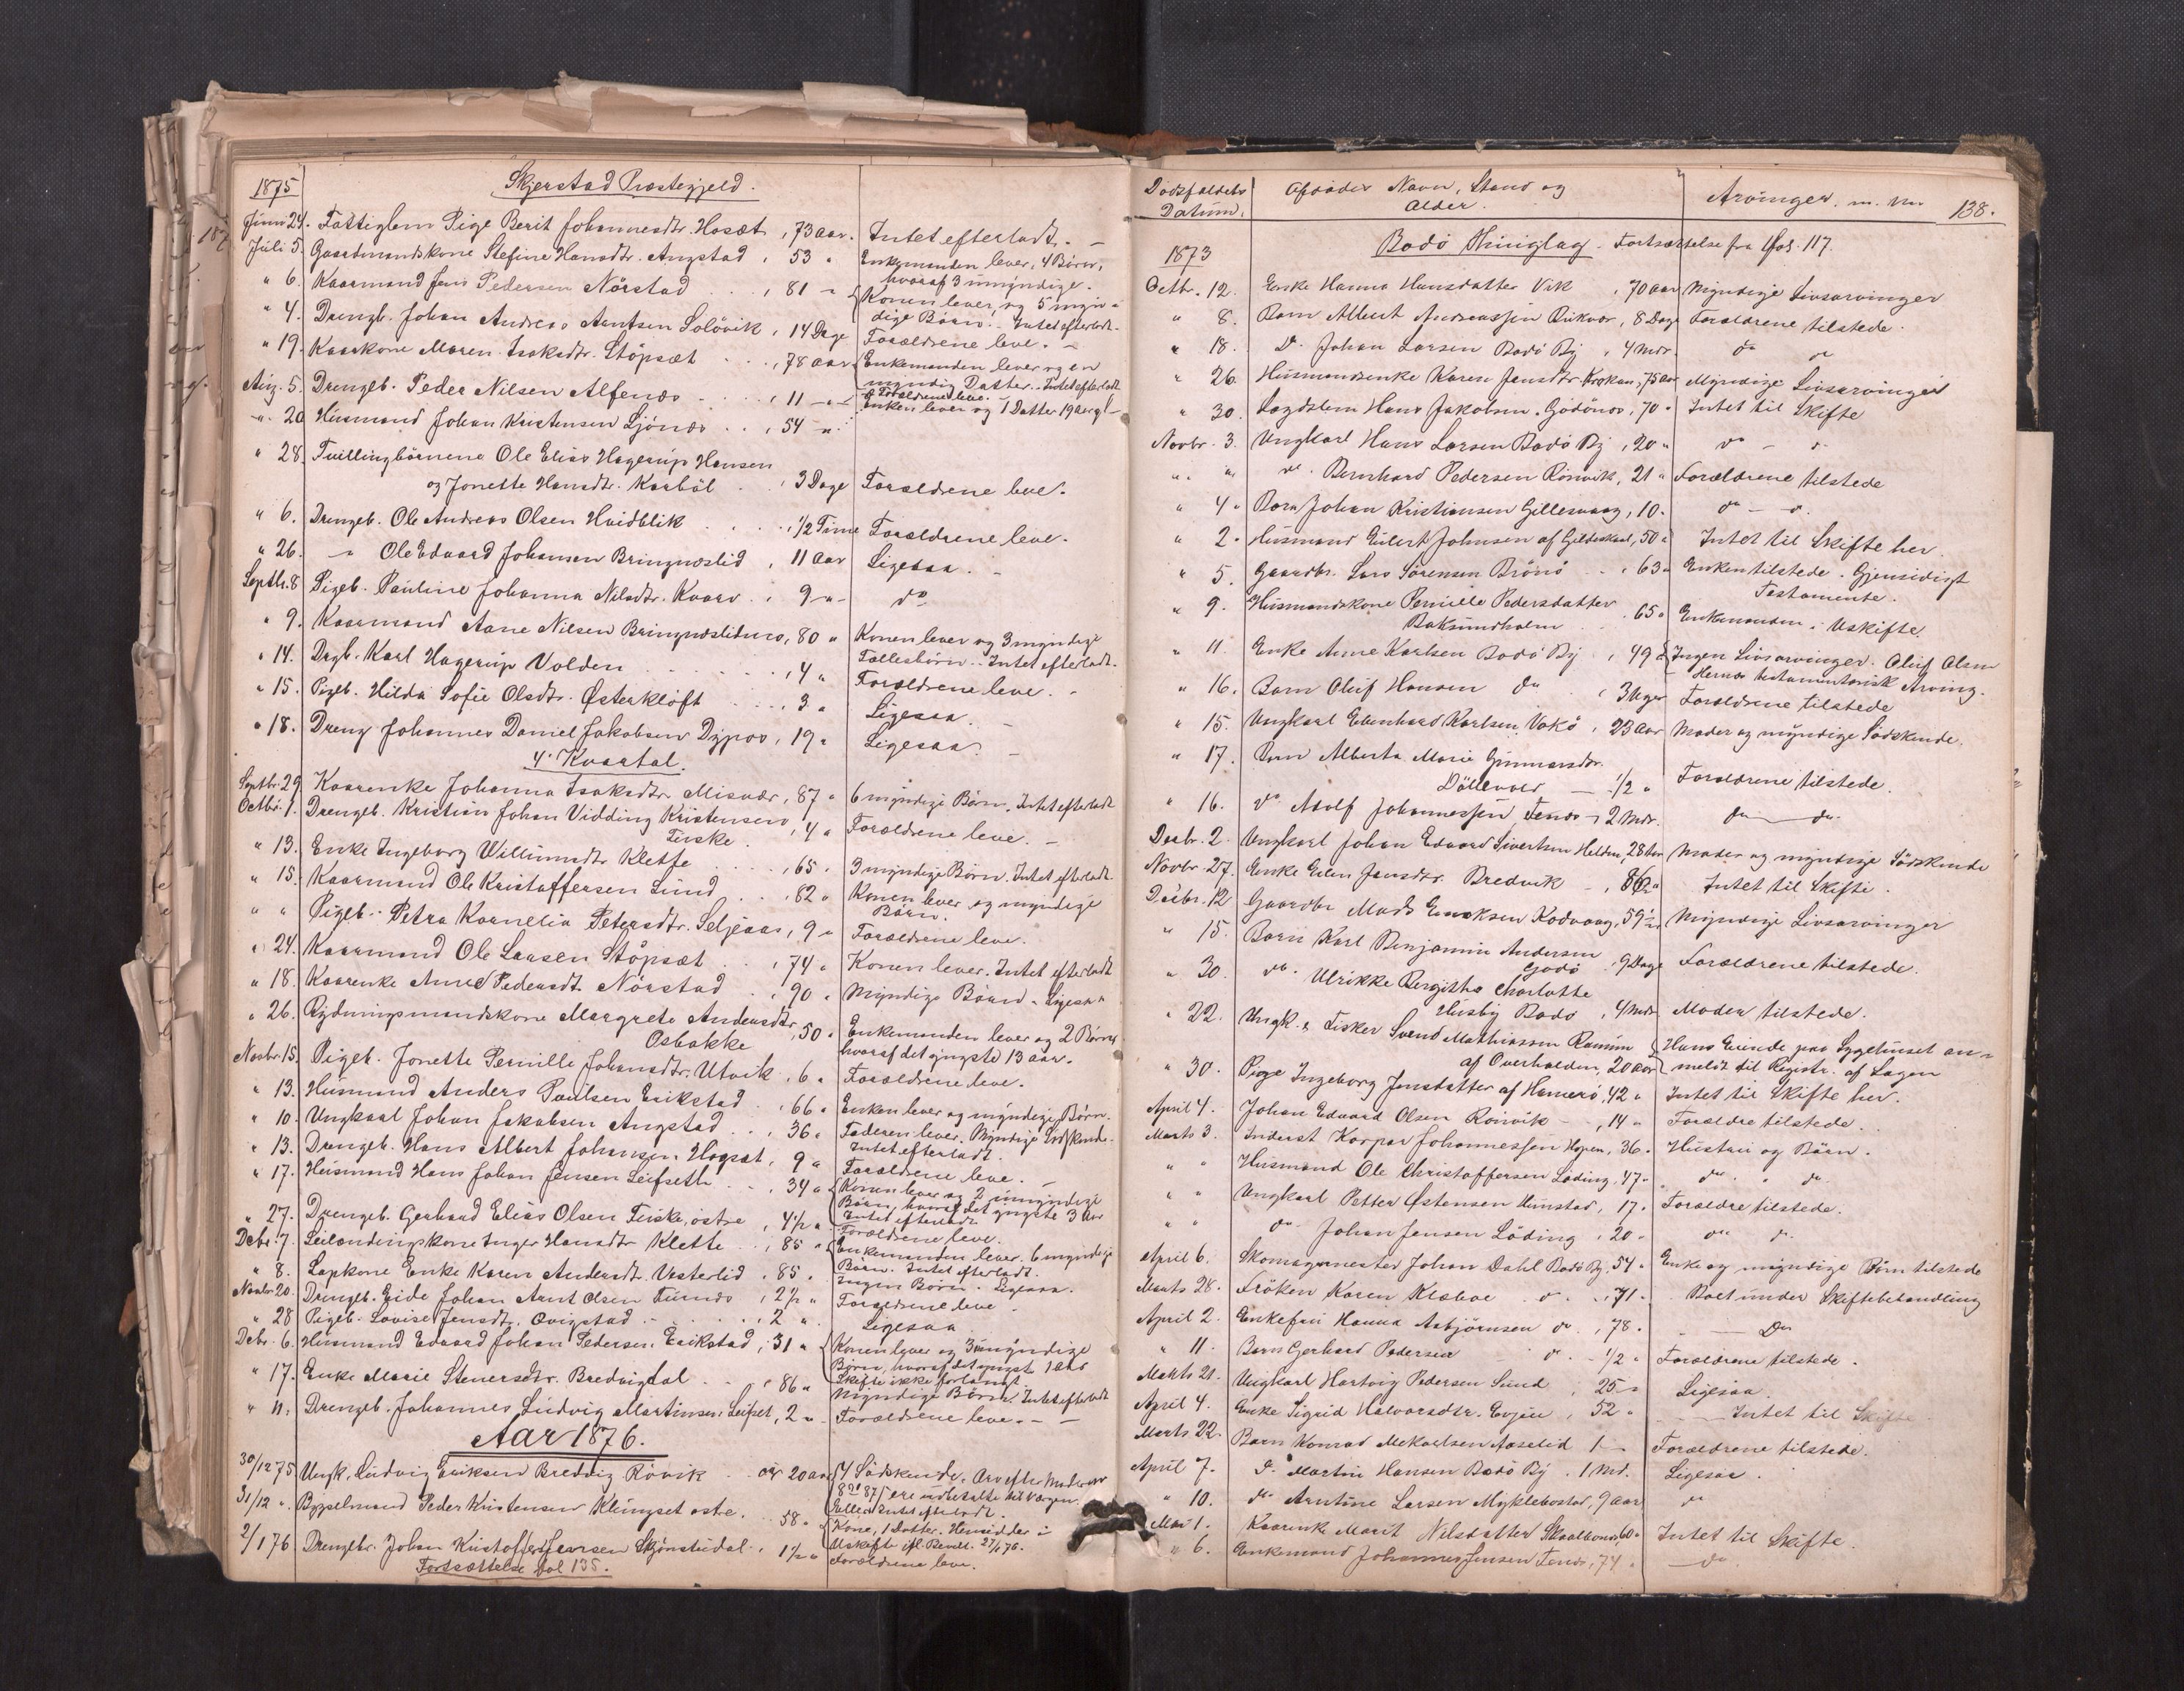 1875
Skjerstad Præstegjeld.
Juni 24. Fattiglem Pige Berit Johannesdtr. Hosæt, 73 Aar. Intet efterladt. —
Juli 5. Gaardmandskone Stefine Hansdtr. Angstad, 53 " Enkemanden lever, 4 Børn, hvoraf 3 umyndige.
" 6. Kaarmand Jens Pedersen Nörstad . . , 81 " Konen lever, og 5 myndige Børn. Intet efterladt.
" 4. Drengb. Johan Andreas Arntsen Solövik, 14 Dage Forældrene leve. —
" 19. Kaarkone Maren Isaksdtr. Stöpsæt . . , 78 Aar Enkemanden lever og en myndig Datter. Intet efterladt
Aug. 5. Drengeb. Peder Nilsen Alfenæs . . , 11 — " — Forældrene leve.
" 20 Husmand Johan Kristensen Ljönes . . , 54 " Enken lever og 1 Datter 19 Aar gl.
" 28. Tvillingbørnene Ole Elias Hagerup Hansen
og Jonette Hansdtr. Karböl . , 3 Dage Forældrene leve.
" 6. Drengeb. Ole Andreas Olsen Hvidblik . . , 1/2 Time Forældrene leve.
" 26. — " Ole Edvard Johansen Bringneslid , 11 Aar Ligesaa. —
Septbr. 8 Pigeb. Pauline Johanna Nilsdtr. Kvarv . , 9 — " — do
" 9. Kaarmand Aane Nilsen Bringneslidmo, 80 " Konen lever og 3 myndige Fællesbørn. Intet efterladt.
" 14. Drgb. Karl Hagerup Volden . . , 4 " Forældrene leve. —
" 15. Pigeb. Hilda Sofie Olsdtr. Østerkløft . . , 3 " Ligesaa. —
" 18. Dreng Johannes Daniel Jakobsen Dypos, 19 " Ligesaa. —
4. Kvartal.
Septbr. 29 Kaarenke Johanna Isaksdtr. Misvær, 87 " 6 myndige Børn. Intet efterladt
Octbr. 1. Drengeb. Kristian Johan Vidding Kristensen
Feiske . , 4 " Forældrene leve. —
" 13. Enke Ingeborg Willumsdtr. Klette . . , 65 " 3 myndige Børn. Intet efterladt.
" 15. Kaarmand Ole Kristoffersen Lund . , 82 " Konen lever og myndige Børn.
" " Pigeb. Petra Kornelia Petersdtr. Seljeaas, 9 " Forældrene leve.
" 24. Kaarmand Ole Larsen Stöpsæt . . , 74 " Konen lever. Intet efterladt
" 18. Kaarenke Anne Pedersdt. Nörstad . , 90 " Myndige Børn. Ligesaa
" 26. Rydningsmandskone Margrete Andersdtr.
Osbakke , 50 " Enkemanden lever og 2 Børn, hvoraf det yngste 13 aar.
Novbr. 15. Pigeb. Jonette Pernille Johansdtr. Utvik, 6 " Forældrene leve.
" 13. Husmand Anders Paulsen Erikstad . , 66 " Enken lever og myndige Børn.
" 10. Ungkarl Johan Jakobsen Angstad . . , 36 " Faderen lever. Myndige Sødskende. Intet efterladt.
" 13. Drengeb. Hans Albert Johansen Hogsæt, 9 " Forældrene leve. —
" 17. Husmand Hans Johan Jensen Leifseth . , 34 " Konen lever og 2 umyndige Børn, hvoraf det yngste 3 Aar Intet efterladt
" 27. Drengeb. Gerhard Elias Olsen Feiske, östre , 4 1/2 " Forældrene leve.
Debr. 7. Leilændingskone Inger Hansdtr Klette . , 85 " Enkemanden lever. 6 myndige Børn. Intet efterladt.
" 8. Lapkone Enke Karen Andersdt. Vesterlid , 85 " Ingen Børn. Ligesaa.
Novbr 20. Drengeb. Eide Johan Arnt Olsen Tuenæs , 2 1/2 " Forældrene leve —
" 28 Pigeb. Lovise Jensdt. Övigstad . . , 2 " Ligesaa
Debr. 6. Husmand Edvard Johan Pedersen Erikstad , 31 " Konen lever og 3 umyndige Børn, hvoraf det yngst 1 Aar Skifte ikke forlangt
" 17. Enke Marie Stenersdtr. Bredvigdal . , 86 " Myndige Børn. Intet efterladt
" 11. Drengeb. Johannes Ludvig Martinsen Leifset, 2 " Forældrene leve. — —
Aar 1876.
30/12 75 Ungk. Ludvig Eriksen Breddig Rövik . 20 aar 4 Sødskende. Arv efter Moder
31/12 ". Bygselmand Peder Kristensen Klungset østre. . 58 " Kone, 1 Datter. Hensidder i Uskifte ifl. Bevill. 27/1 76.
2/1 76 Drengebr. Johan Kristoffer Jensen Skjönstudal . 1 1/2 " Forældrene leve.
Fortsættelse Fol 135.
Dødsfaldets Datum.
Afdødes Navn, Stand og Alder.
Arvinger m. m.
138.
1873
Bodö Thinglag. Fortsættelse fra Fol. 117.
Octbr. 12. Enke Hanna Hansdatter Vik , 70 aar Myndige Livsarvinger
" 8. Barn Albert Andreassen Rikvor, 8 Dage Forældrene tilstede.
" 18. Do. Johan Larsen Bodö By , 4 Mdr. do do
" 26. Husmandsenke Karen Jensdtr. Krokan, 75 aar Myndige Livsarvinger
" 30. Lægdslem Hans Jakobsen Godönes, 70 " Intet til Skifte
Novbr. 3. Ungkarl Hans Larsen Bodö By , 20 " do — do
" " do. Bernhard Pedersen Rönvik, 21 " Forældrene tilstede
" 4. Barn Johan Kristiansen Gillesvaag, 10. do — do.
" 2. Husmand Eilert Johnsen af Gildeskaal, 50 " Intet til Skifte her.
" 5. Gaardbr. Lars Sörensen Brönö . . , 63 " Enken tilstede. Gjensidigt Testamente.
" 9. Husmandskone Pernille Pedersdatter
Baksundholm . 65 " Enkemanden i Uskifte.
" 11. Enke Anne Karlsen Bodö By , 49 " Ingen Livsarvinger. Oluf Olsen Hernes testamentarisk Arving.
" 16. Barn Oluf Hansen do , 3 Uger Forældrene tilstede
" 15. Ungkarl Edenhard Karlsen Vakö , 23 Aar Moder og myndige Södskende.
" 17. Barn Alberta Marie Gunnarsdtr.
Döllevold — 1/2 " Forældrene tilstede.
" 16. do Adolf Johannessen Fenes — 2 Mdr. do — do.
Decbr. 2. Ungkarl Johan Edvard Sivertsen Helden, 28 Aar Moder og myndige Södskende
Novbr. 27. Enke Elen Jensdtr. Bredvik — , 86 " Intet til Skifte.
Decbr. 12 Gaardbr. Mads Enoksen Kodvaag, 59 1/2 " Myndige Livsarvinger
" 15. Barn Karl Benjamin Andersen
Godö . 9 Dage Forældrene tilstede.
" 30. do. Ulrikke Bergitha Charlotte
Husby Bodö , 4 Mdr. Moder tilstede.
" 22. Ungk. & Fisker Svend Mathiassen Ramsum
af Overhalden, 20 aar Hans Eiende paa Sygehuset anmeldt til Registr. af Lagen
" 30. Pige Ingeborg Jensdatter af Hamerö, 42 " Intet til Skifte her.
April 4. Johan Edvard Olsen Rönvik — , 14 " Forældre tilstede.
Marts 3. Inderst Kaspar Johannessen Hopen, 36. Hustru og Börn.
" " Husmand Ole Christoffersen Löding, 47 " do " do
" " Ungkarl Petter Østensen Hunstad, 17. Forældre tilstede.
" " do Johan Jensen Löding , 20 " do do
April 6. Skomagermester Johan Dahl Bodö By, 54 " Enke og myndige Börn tilstede
Marts 28. Fröken Karen Klæboe do. , 71. Boet under Skiftebehandling
April 2. Enkefru Hanna Asbjörnsen do. , 78. — Do
" 11. Barn Gerhard Pedersen do. — 1/2 " Forældrene tilstede.
Marts 21. Ungkarl Hartvig Pedersen Sund , 25 " Ligesaa.
April 4. Enke Sigrid Halvorsdtr. Evjen , 52 " — Intet til Skifte
Marts 22. Barn Konrad Mekaelsen Aaselid 1 — Forældrene tilstede.
April 7. Do. Martin Hansen Bodö By . 1 Md. Ligesaa.
" 10. do Arntine Larsen Myklebostad, 9 aar do
Mai 1. Kaarenke Marit Nilsdatter Skaalbones, 60 " Intet til Skifte.
" 6. Enkemand Johannes Jensen Fenes, 74 " — do